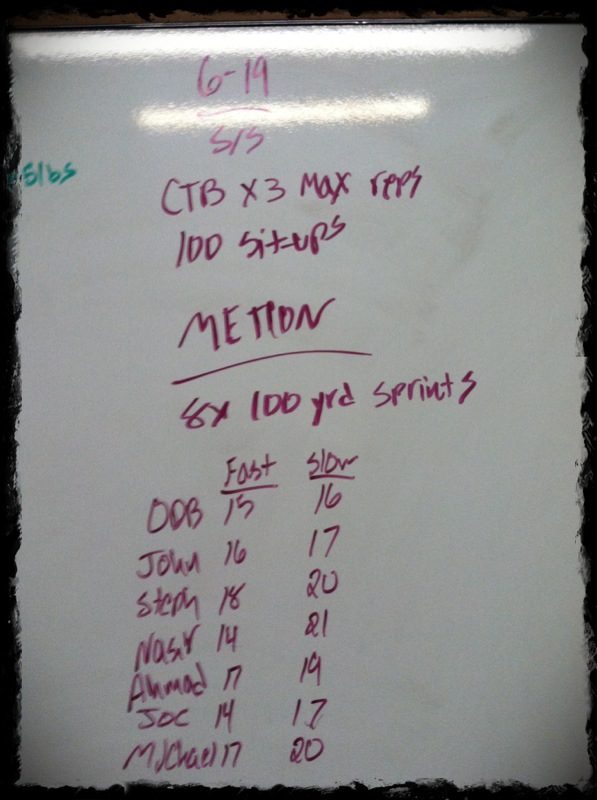 6-19
S/S
5lbs
CTB x3 Max reps
100 sit-ups
METCON
8x 100 yrd sprints
Fast Slow
ODB 15 16
John 16 17
Steph 18 20
Nasir 14 21
Ahmad 17 19
Joe 14 17
Michael 17 20